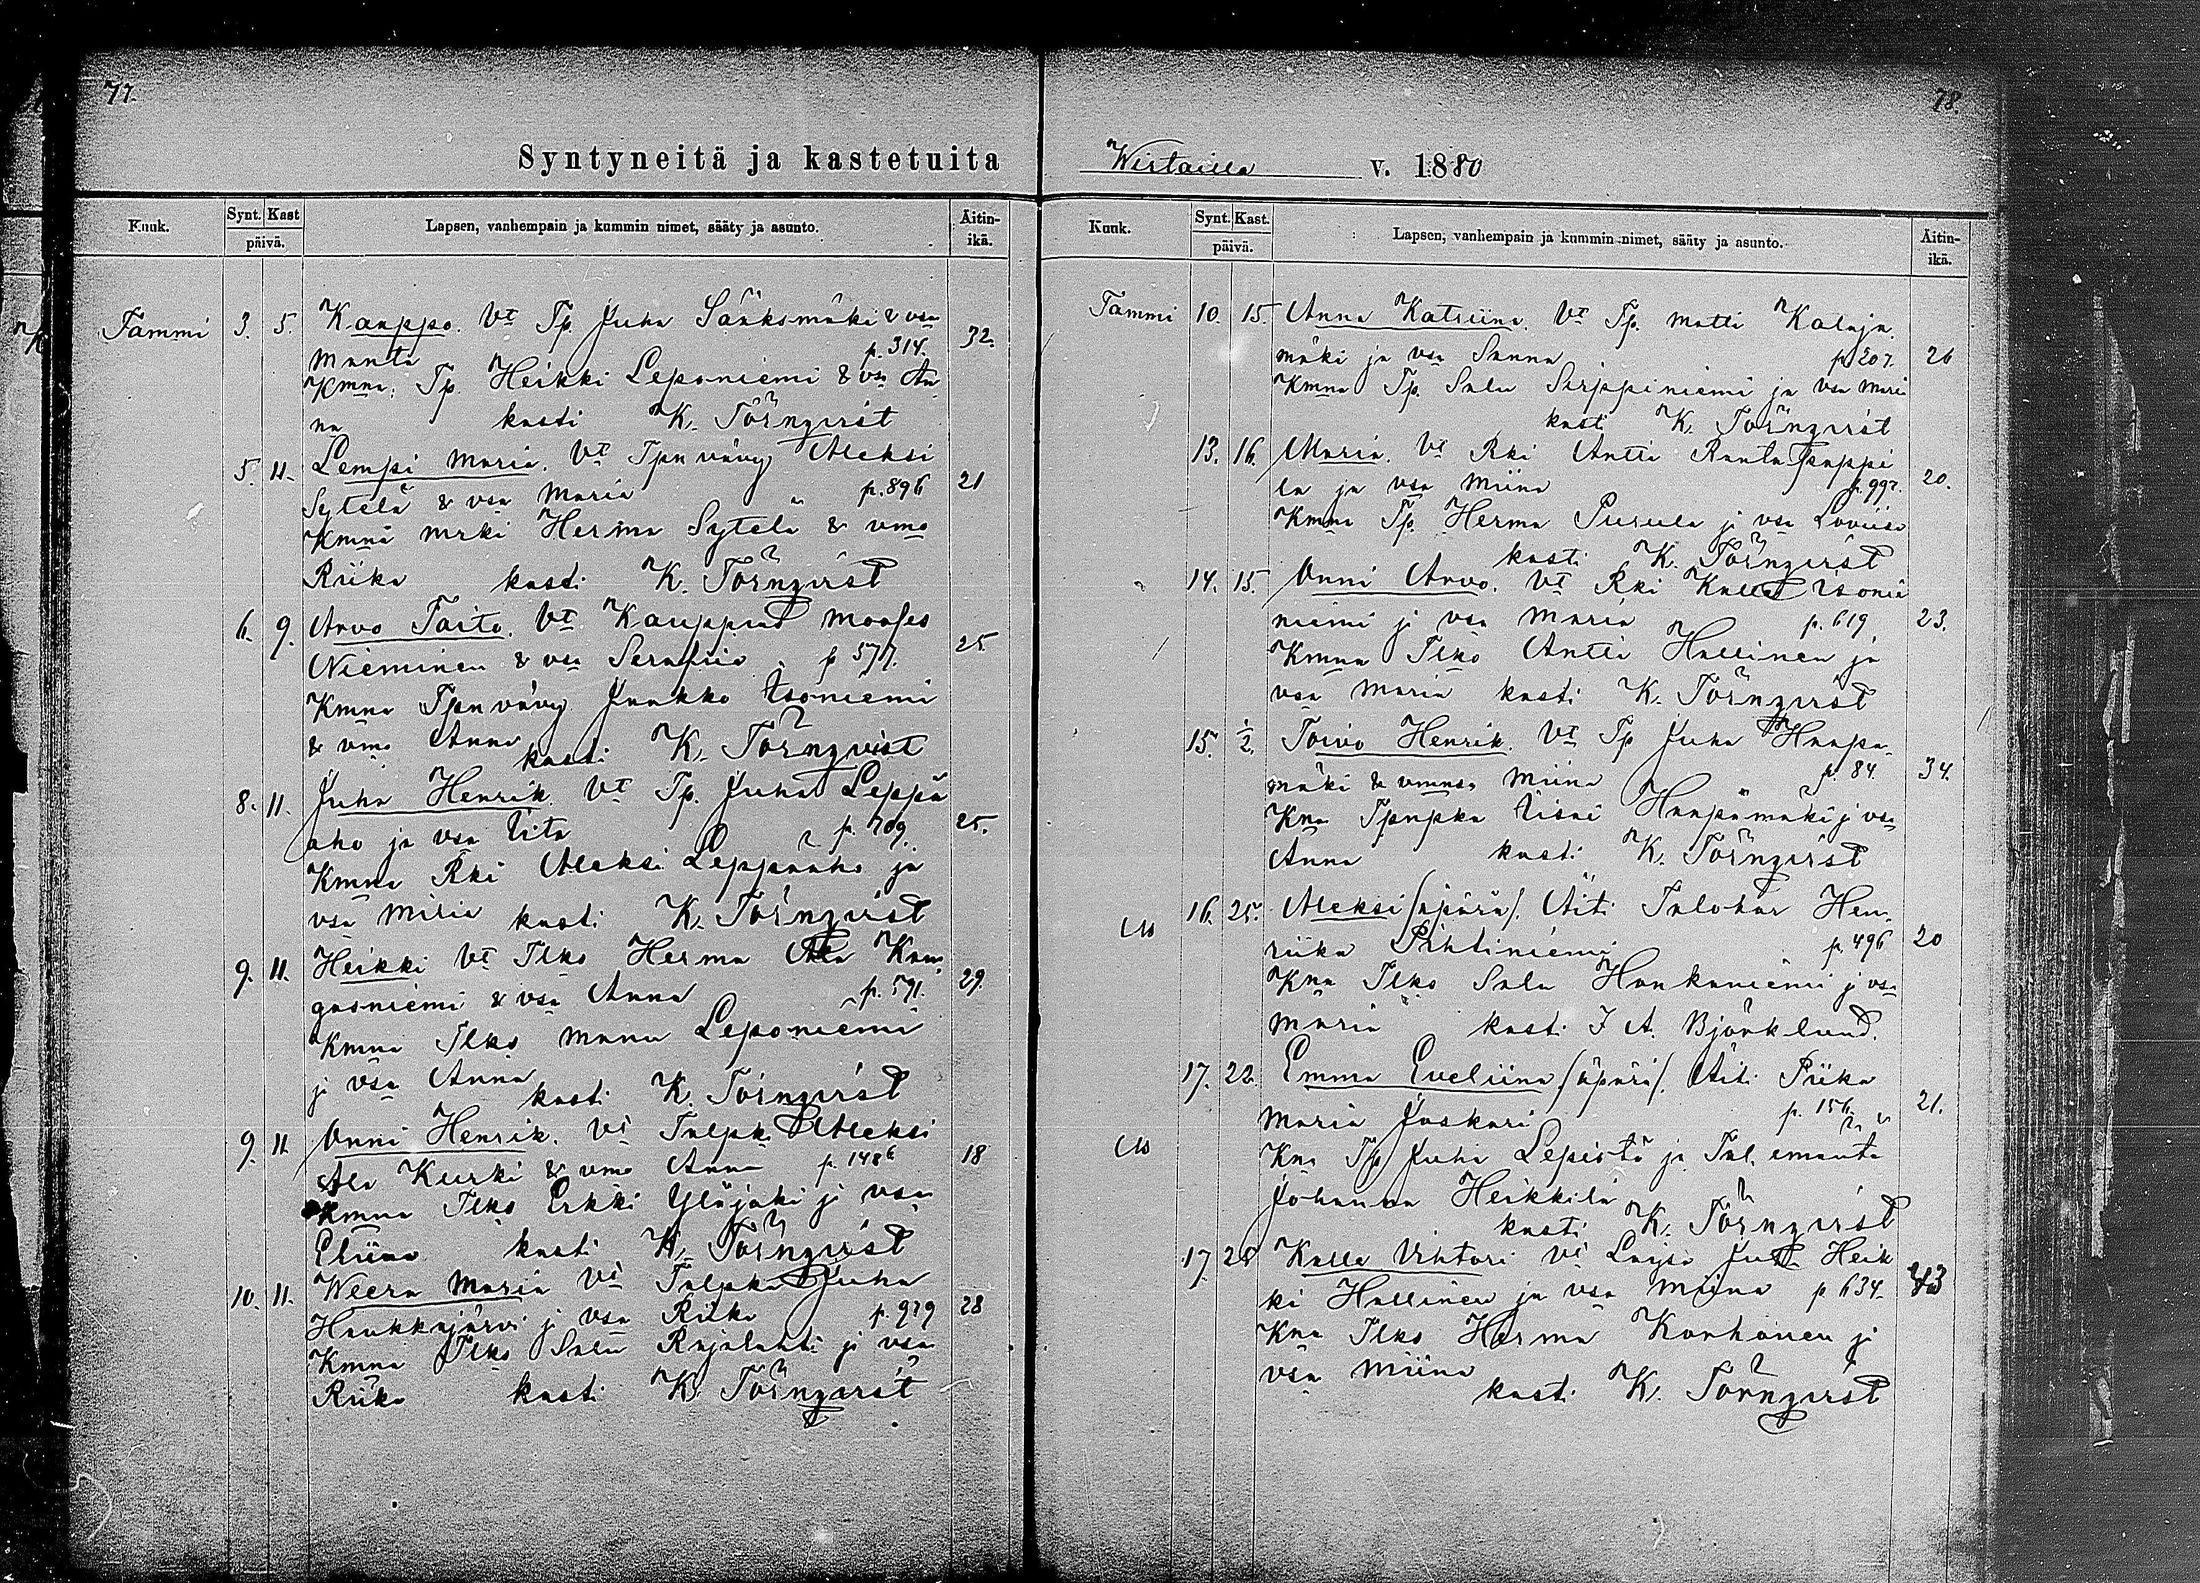 77.
Syntyneitä ja kastetuita
Kuuk. Synt. Kast päivä. Lapsen, vanhempain ja kummin nimet, sääty ja asunto. Äitin-ikä.
Tammi 3. 5. Kauppo. Vt Tp. Juha Sääksmäki & vsa 32.
Manta p. 314.
Kmna. Tp Heikki Leponiemi & vsa An
na kasti K. Törnqvist
5. 11. Lempi Maria. Vt Tpn vävy Aleksi 21
Sytelä & vsa Maria p. 896
Kmna mrki Herma Sytelä & vmo
Riika kasti K. Törnqvist
6. 9. Arvo Taito. Vt. Kauppias Mooses 25
Nieminen & vsa Serafiia p 577.
Kmna Tpn vävy Jaakko Isoniemi
& vmo Anna
kasti K. Törnqvist
8. 11. Juho Henrik. Vt Tp. Juha Leppä 25.
aho ja vsa Iita p. 709.
Kmna Rki Aleksi Leppäaho ja
vsa Miria kasti K. Törnqvist
9. 11. Heikki Vt Ilko Herma Ala Kan 29.
gasniemi & vsa Anna p. 591.
Kmna Ilko Manu Leponiemi
j vsa Anna
kasti K. Törnqvist
9. 11. Onni Henrik. Vt Talpk. Aleksi 18
Ala Kurki & vmo Anna p. 1486
Kmna Ilko Erkki Yläjoki ja vsa
Eliina kasti K. Törnqvist
10. 11. Weera Maria Vt Talpka Juha 28
Haukkajärvi j vsa Riika p. 979
Kmna Ilko Salu Rajalahti ja vsa
Riika kasti K. Törnqvist
78.
Wirtailla v. 1880
Kuuk. Synt. Kast. päivä. Lapsen, vanhempain ja kummin nimet, sääty ja asunto. Äitin-ikä.
Tammi 10. 15. Anna Katriina. Vt Tp. Matti Kalaja
mäki ja vsa Sanna p 207. 26
Kmna Tp. Salu Sirppiniemi ja vsa Mari
kasti K. Törnqvist
13. 16. Maria. Vt Rki Antti Rantapappi
la ja vsa Miina p. 997. 20.
Kmna Tp. Herma Purula j vsa Loviisa
kasti K. Törnqvist
14. 15. Onni Arvo. Vt Rki Kalle Isonii
niemi j vsa Maria p. 619 23.
Kmna Ilko Antti Hallinen ja
vsa Maria kasti K. Törnqvist
15. 1/2. Toivo Henrik. Vt Tp Juha Haapa
mäki & vmnsa Miina p. 84. 34.
Kna Tpnpka Iisai Haapamäki j vsa
Anna kasti K. Törnqvist
16. 25. Aleksi /äpärä/. Äiti Talohar Hen
riika Pihtiniemi p. 496 20
Kna Ilko Salu Hankaniemi j vsa
Maria kasti I A. Björklund.
17. 22. Emma Eveliina /äpärä/. Äiti Piika
Maria Jaskari p. 156 21.
Kna Tp Juha Lepistö ja Tal. emäntä
Johanna Heikkilä
kasti K. Törnqvist
17. 25 Kalle Vihtori Vt Juha Heik
ki Hallinen ja vsa Miina p 634. 43
Kna Ilko Herma Korhonen ja
vsa Miina
kasti K. Törnqvist